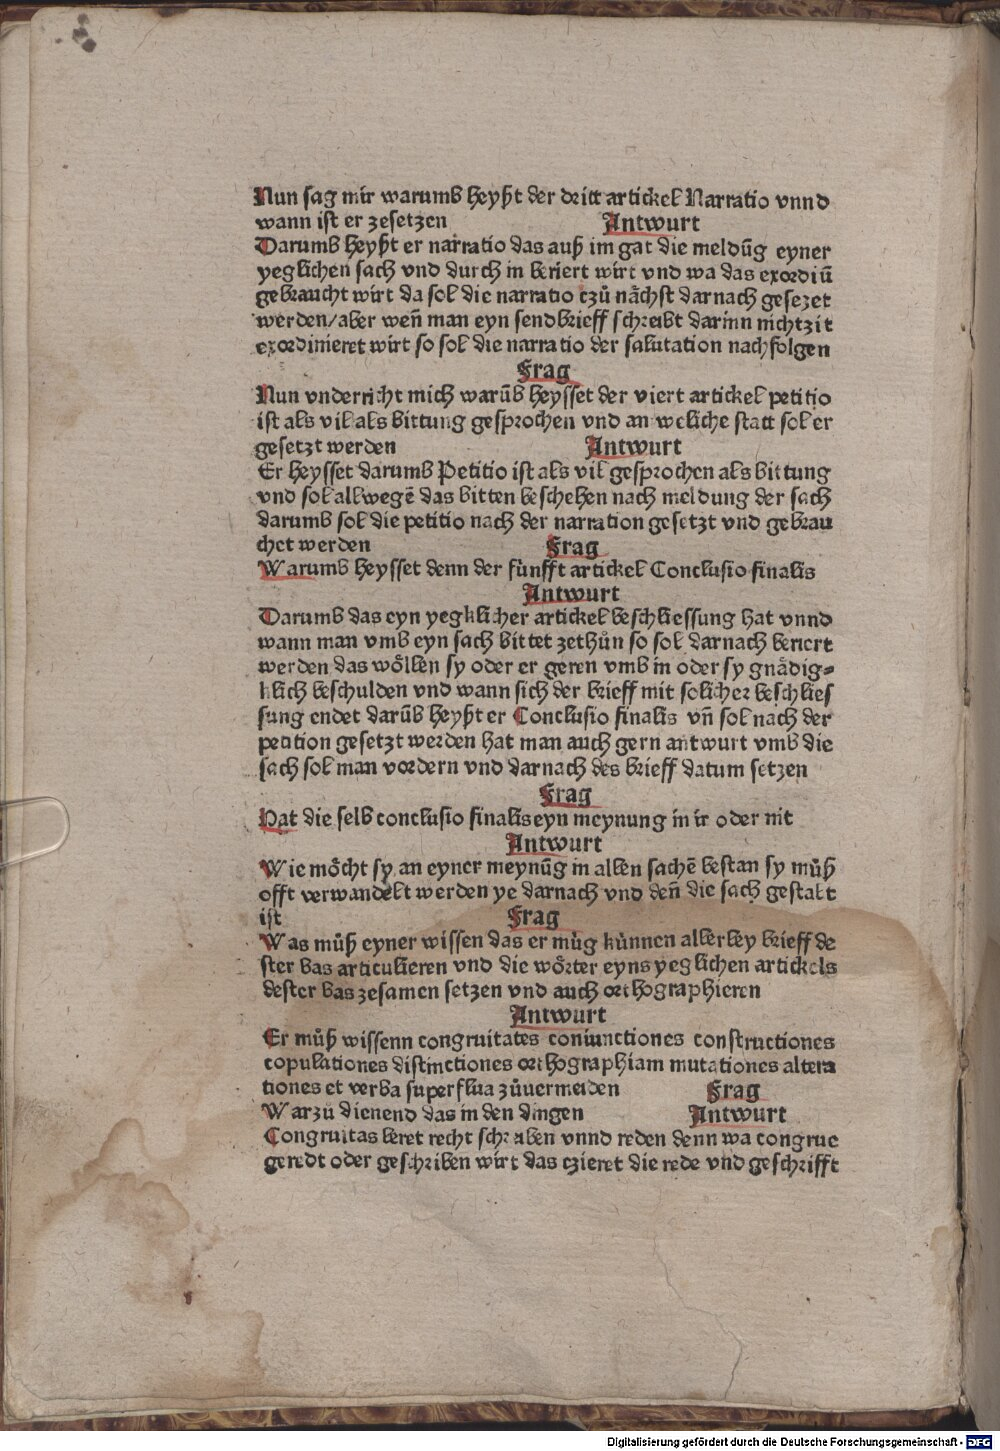 Nun sag mir warumb heyßt der dritt artickel Narratio vnnd
wann ist er zesetzen Antwurt
Darumb heyßt er narratio das auß im gat die meldūg eyner
yeglichen sach vnd durch in beriert wirt vnd wa das exordiū
gebraucht wirt da sol die narratio tzů nächst darnach gesezet
werden/aber weñ man eyn sendbrieff schreibt darinn nichtzit
exordinieret wirt so sol die narratio der salutation nachfolgen
Frag
Nun vnderricht mich warūb heysset der viert artickel petitio
ist als vil als bittung gesprochen vnd an weliche statt sol er
gesetzt werden Antwurt
Er heysset darumb Petitio ist als vil gesprochen als bittung
vnd sol allwegē das bitten beschehen nach meldung der sach
darumb sol die petitio nach der narration gesetzt vnd gebrau
chet werden Frag
Warumb heysset denn der fünfft artickel Conclusio finalis
Antwurt
Darumb das eyn yegklicher artickel beschliessung hat vnnd
wann man vmb eyn sach bittet zethůn so sol darnach beriert
werden das wöllen sy oder er geren vmb in oder sy gnädig-
klich beschulden vnd wann sich der brieff mit solicher beschlies
sung endet darūb heyßt er Conclusio finalis vñ sol nach der
petition gesetzt werden hat man auch gern antwurt vmb die
sach sol man vordern vnd darnach des brieff datum setzen
Frag
Hat die selb conclusio finalis eyn meynung in ir oder nit
Antwurt
Wie möcht sy an eyner meynūg in allen sachē bestan sy můß
offt verwandelt werden ye darnach vnd deñ die sach gestalt
ist Frag
Was můß eyner wissen das er müg künnen allerley brieff de
ster bas articulieren vnd die wörter eyns yeglichen artickels
dester bas zesamen setzen vnd auch orthographieren
Antwurt
Er můß wissenn congruitates coniunctiones constructiones
copulationes distinctiones orthographiam mutationes altera
tiones et verba superflua zůuermeiden Frag
Warzů dienend das in den dingen Antwurt
Congruitas leret recht schreiben vnnd reden denn wa congrue
geredt oder geschriben wirt das czieret die rede vnd geschrifft
Digitalisierung gefördert durch die Deutsche Forschungsgemeinschaft - DFG